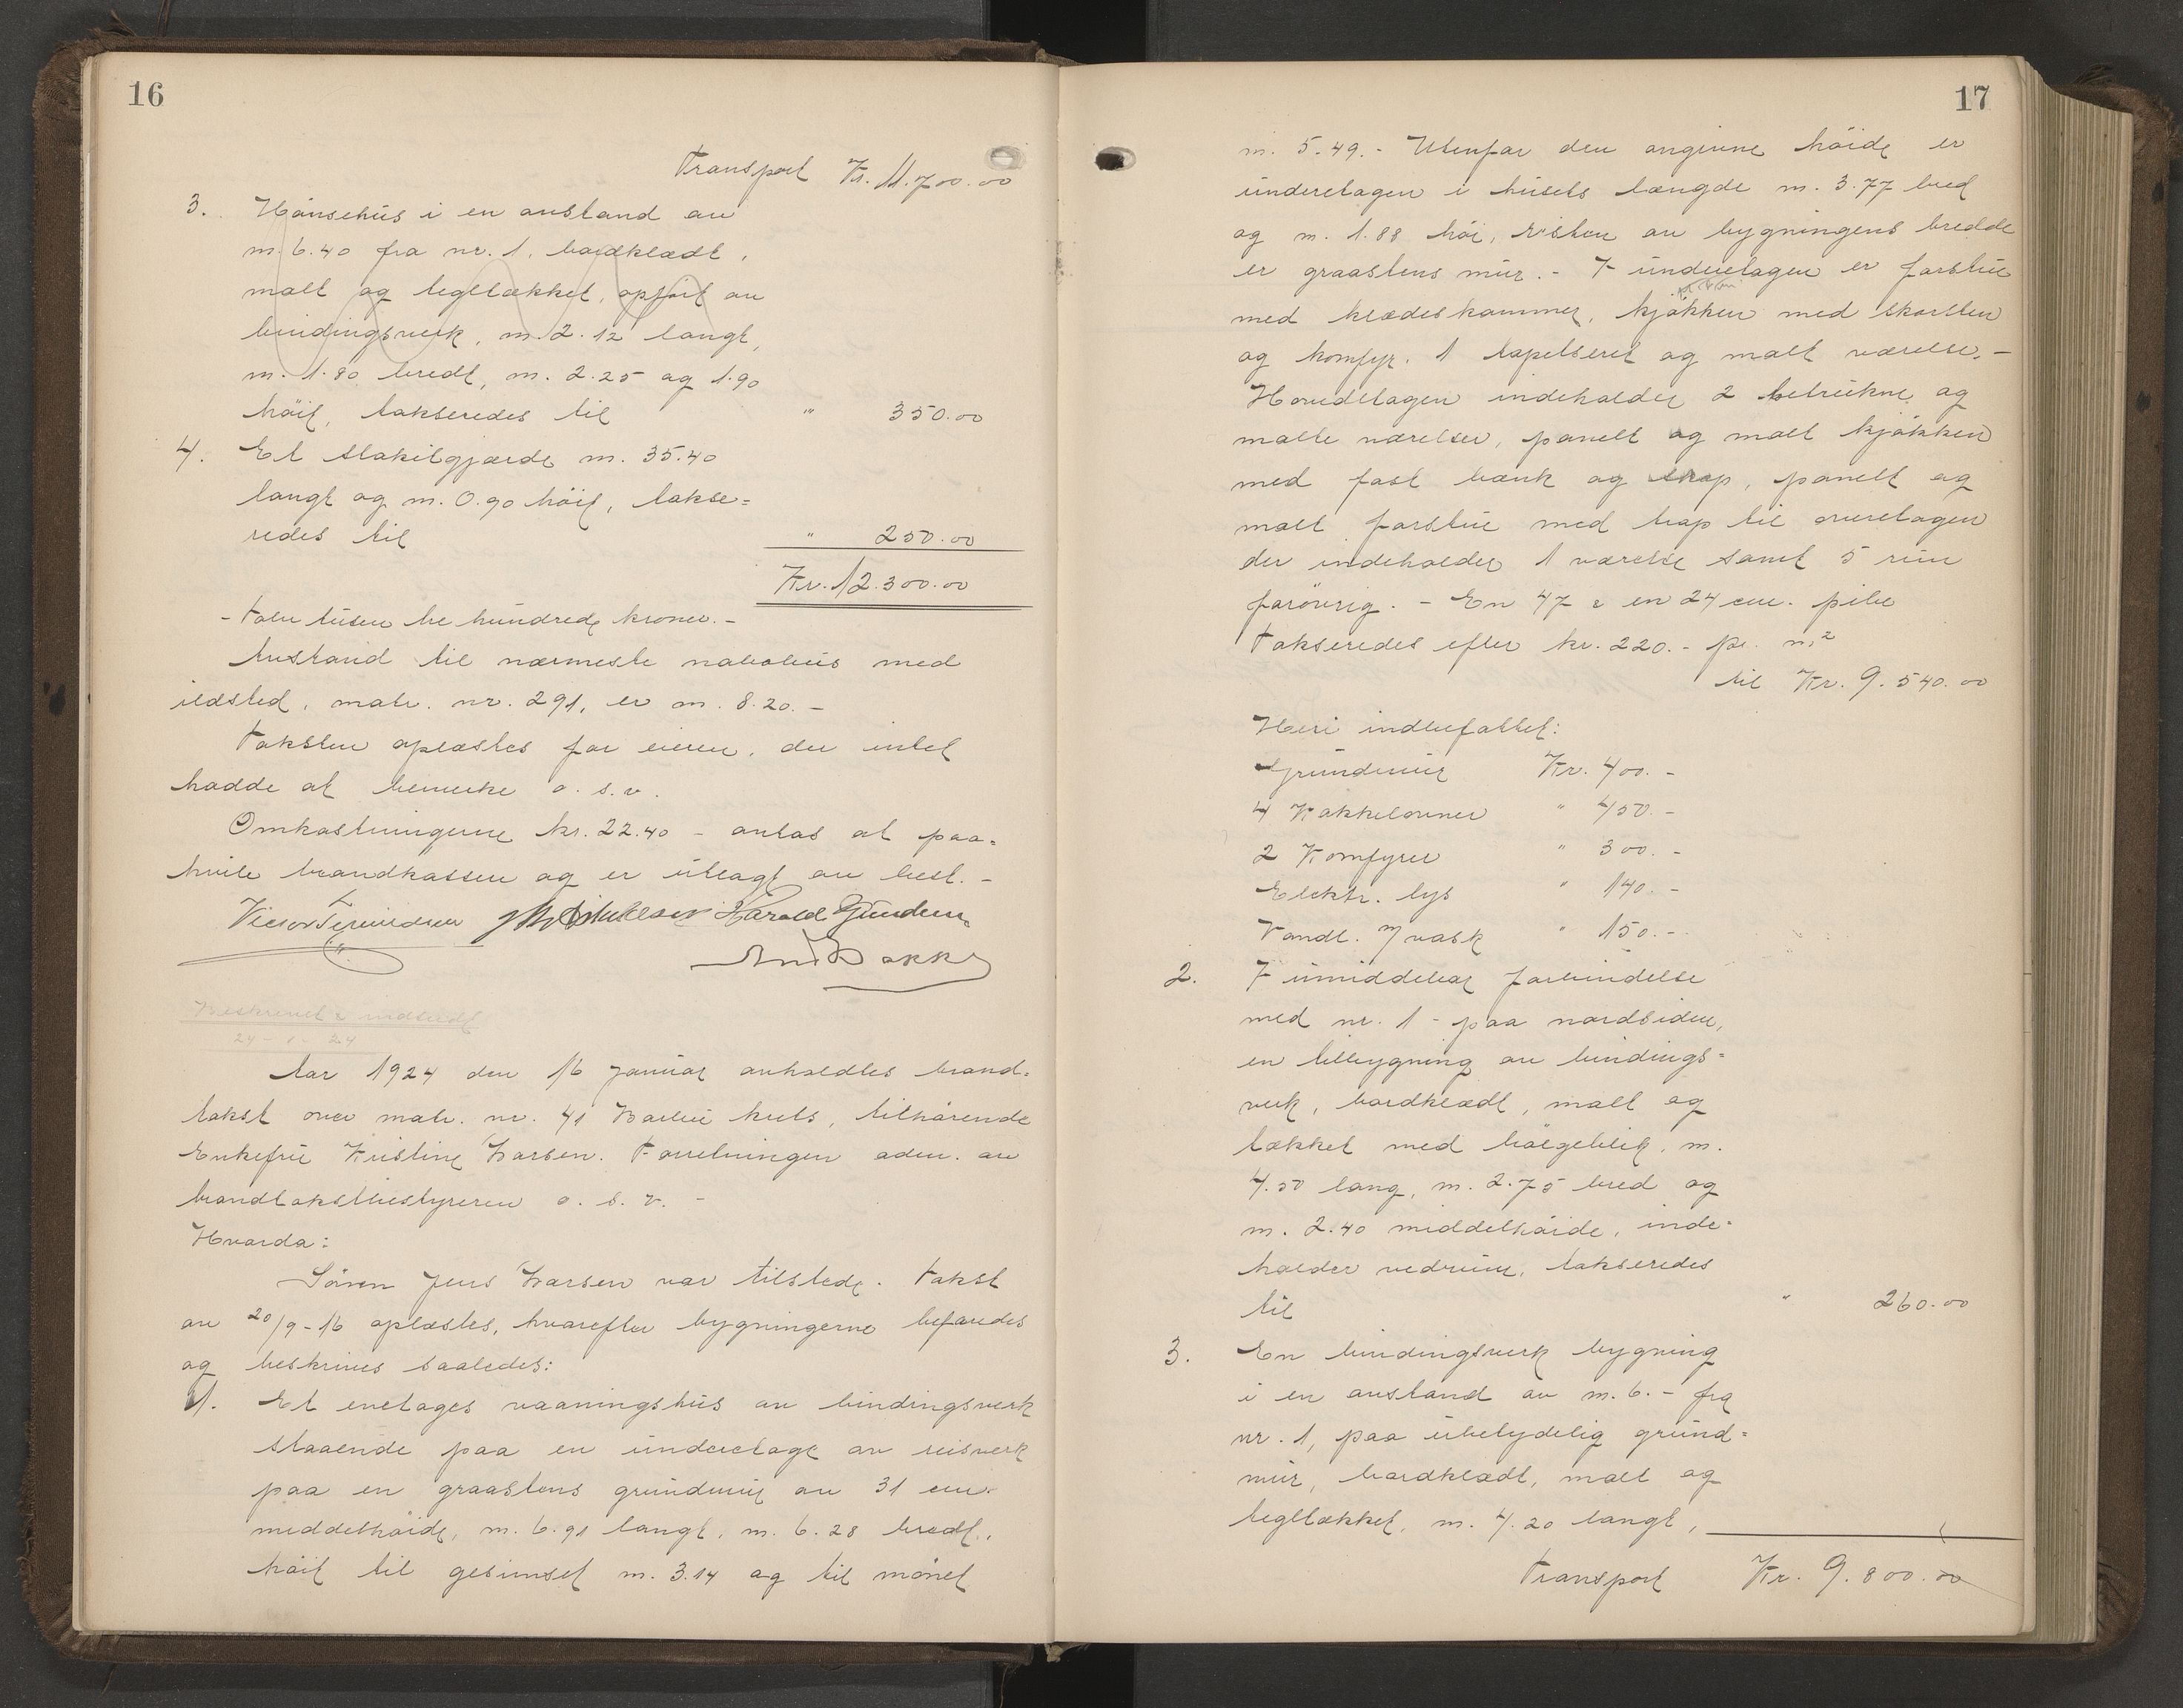 16
Transport Kr. 11.700.00
3. Hönsehus i en avstand av
m. 6.40 fra nr. 1, bordklædt,
malt og tegltækket, opført av
bindingsverk, m. 2.12 langt,
m. 1.80 bredt, m. 2.25 og 1.90
höit, takseredes til " 350.00
4. Et stakitgjærde m. 35.40
langt og m. 0.90 höit, takse=
redes til " 250.00
Kr. 12.300.00
- Tolv tusen tre hundrede kroner. -
Avstand til nærmeste nabohus med
ildsted, matr. nr. 291, er m. 8.20. -
Taksten oplæstes for eieren, der intet
hadde at bemerke o. s. v.
Omkostningerne kr. 22.40 - antas at paa=
hvile brandkassen og er utlagt av best. -
Harald Gundersen
Beskrevet & indsendt
24 - 1 - 24
Aar 1924 den 16 januar avholdtes brand=
takst over matr. nr. 41 Barbu kuts, tilhörende
Enkefru Kristine Larsen. Forretningen adm. av
brandtakstbestyreren o. s. v. -
Hvorda:
Sören Jens Larsen var tilstede. Takst
av 20/9-16 oplæstes, hvorefter bygningerne befandes
og beskrives saaledes:
1. Et enetages vaaningshus av bindingsverk
staaende paa en underetage av reisverk
paa en graastens grundmur av 31 cm.
middelhöide, m. 6.91 langt, m. 6.28 bredt,
höit til gesimset m. 3.14 og til mönet
17
m. 5.49. - Utenfor den angivne höide er
underetagen i husets længde m. 3.77 bred
og m. 1.88 höi, resten av bygningens bredde
er graastens mur. - I underetagen er forstue
med klædeskammer, kjökken med skorsten
og komfyr. 1 tapetseret og malt værelse. -
Hovedetagen indeholder 2 betrukne og
malte værelser, panelt og malt kjökken
med fast bænk og skap, panelt og
malt forstue med trap til overetagen
der indeholder 1 værelse samt 5 rum
forövrig. - En 47 & en 24 cm. pibe
Takseredes efter kr. 220. - pr. m.²
til Kr. 9.540.00
Heri indbefattet:
Grundmur Kr. 400. -
4 Kakkelovner " 450. -
2 Komfyrer " 300. -
Elektr. lys " 140. -
Vandl. m/ vask " 150. -
2. I umiddelbar forbindelse
med nr. 1 - paa nordsiden,
en tilbygning av bindings=
verk, bordklædt, malt og
tækket med bölgeblik, m.
4.50 lang, m. 2.75 bred og
m. 2.40 middelhöide, inde=
holder vedrum, takseredes
til " 260.00
3. En bindingsverk bygning
i en avstand av m. 6. - fra
nr. 1, paa ubetydelig grund=
mur, bordklædt, malt og
tegltækket, m. 4.20 langt,
Transport Kr. 9.800.00